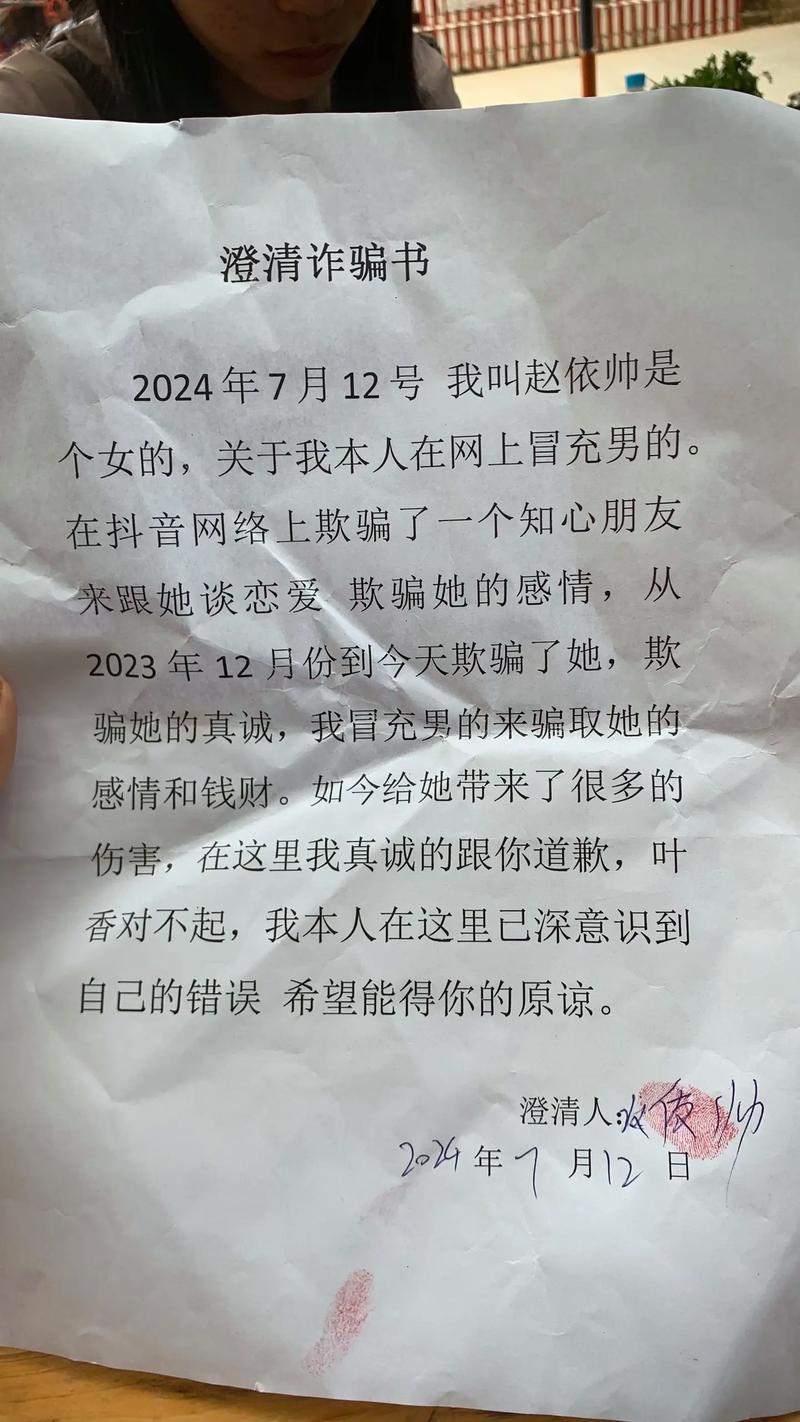 澄清诈骗书
2024年7月12号 我叫赵依帅是
个女的，关于我本人在网上冒充男的。
在抖音网络上欺骗了一个知心朋友
来跟她谈恋爱 欺骗她的感情，从
2023年12月份到今天欺骗了她，欺
骗她的真诚，我冒充男的来骗取她的
感情和钱财。如今给她带来了很多的
伤害，在这里我真诚的跟你道歉，叶
香对不起，我本人在这里已深意识到
自己的错误 希望能得你的原谅。
澄清人:
2024年7月12日